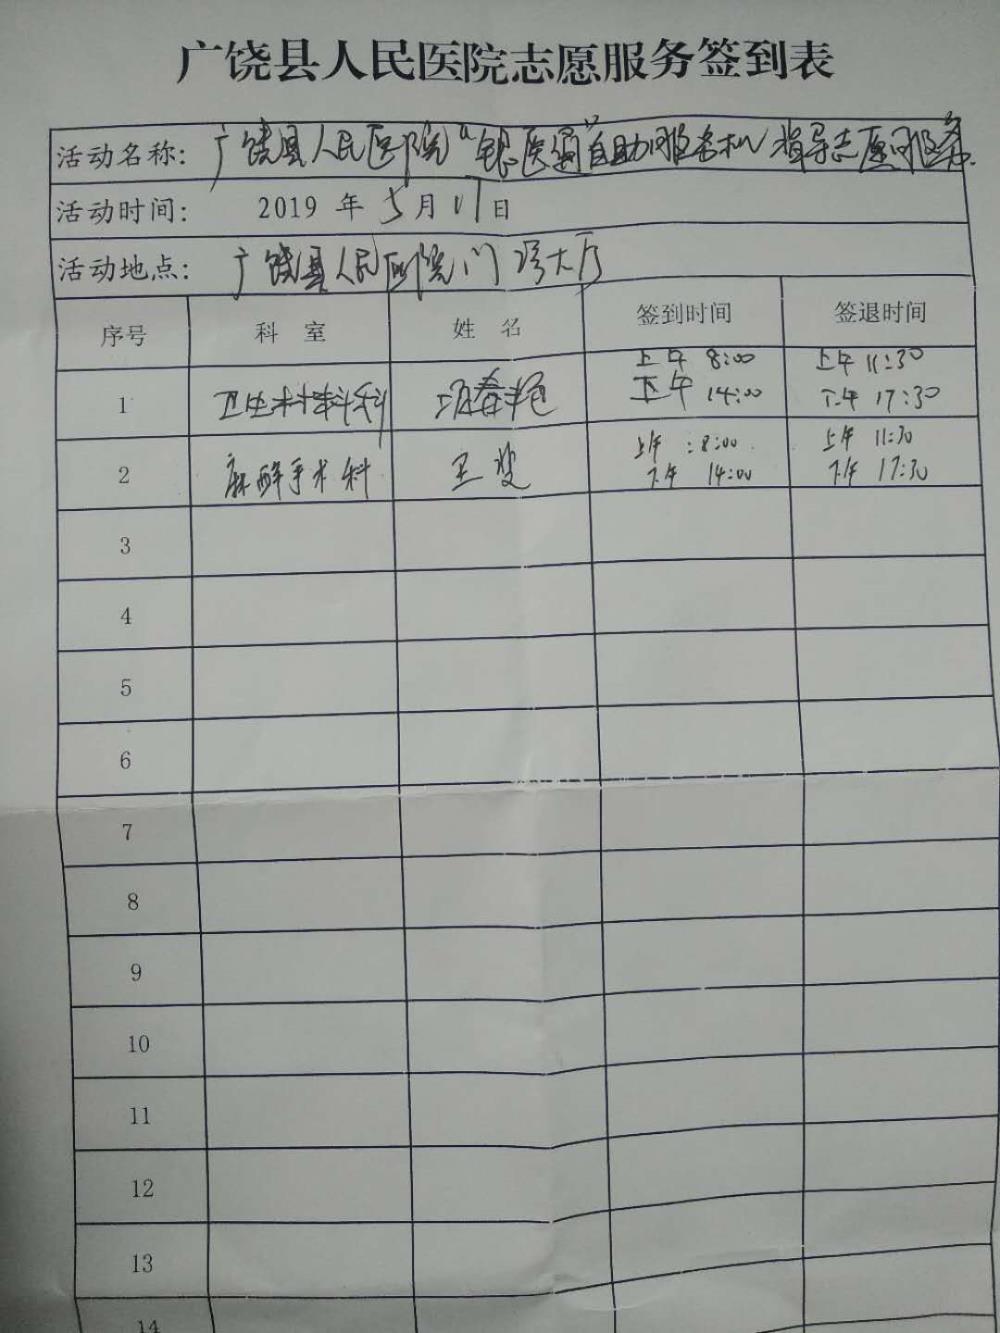 广饶县人民医院志愿服务签到表
活动名称: 广饶县人民医院"银医通"自助服务机 指导志愿服务.
活动时间: 2019 年 5 月 17 日
活动地点: 广饶县人民医院门诊大厅
序号 科 室 姓 名 签到时间 签退时间
1 卫生材料科 上午 8:00 上午 11:30
下午 14:00 下午 17:30
2 麻醉手术科 王斐 上午 :8:00 上午 11:30
下午 14:00 下午 17:30
3
4
5
6
7
8
9
10
11
12
13
14